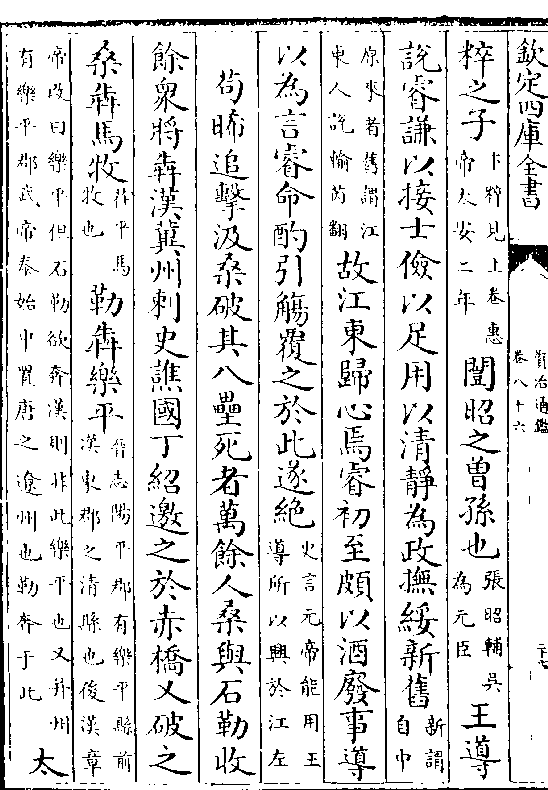 欽定四庫全書
資治通鑑
卷八十六
粹之子卞粹見上卷惠帝太安二年闓昭之曾孫也張昭輔吳為元臣王導
説睿謙以接士儉以足用以清靜為政撫綏新舊新謂自中
原來者舊謂江東人説輸芮翻故江東歸心焉睿初至頗以酒廢事導
以為言睿命酌引觴覆之於此遂絶史言元帝能用王導所以興於江左
苟晞追擊汲桑破其八壘死者萬餘人桑與石勒收
餘衆將犇漢冀州刺史譙國丁紹邀之於赤橋又破之
桑犇馬牧茌平馬牧也勒犇樂平晉志陽平郡有樂平縣前漢東郡之清縣也後漢章
帝改曰樂平但石勒欲奔漢則非此樂平也又并州有樂平郡武帝泰始中置唐之遼州也勒奔于此太